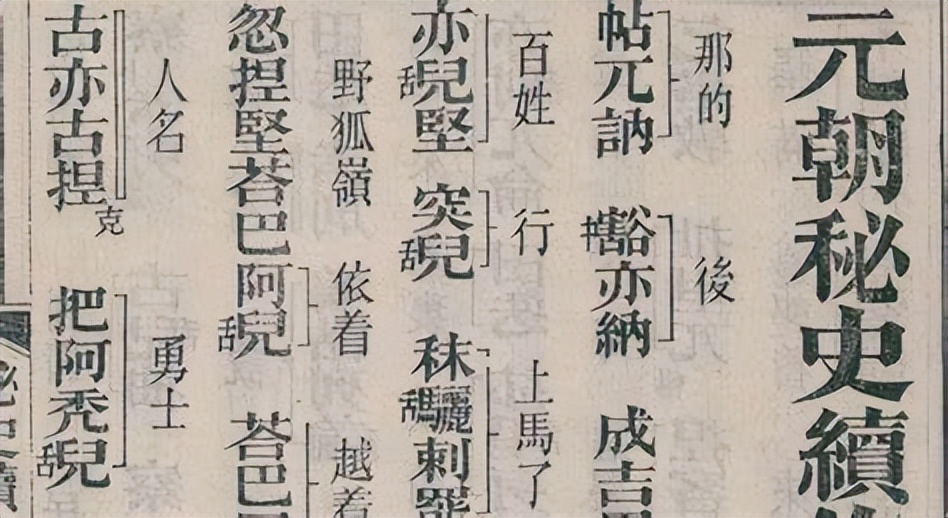 元朝秘史續
那的 後
帖兀訥 豁亦納 成吉
百姓 行 上馬了
亦舌兒堅 突舌兒 秣舌驪剌
野狐嶺 依着 越着
忽捏堅荅巴阿舌兒 荅巴
人名 勇士
古亦古捏克 把阿禿舌兒